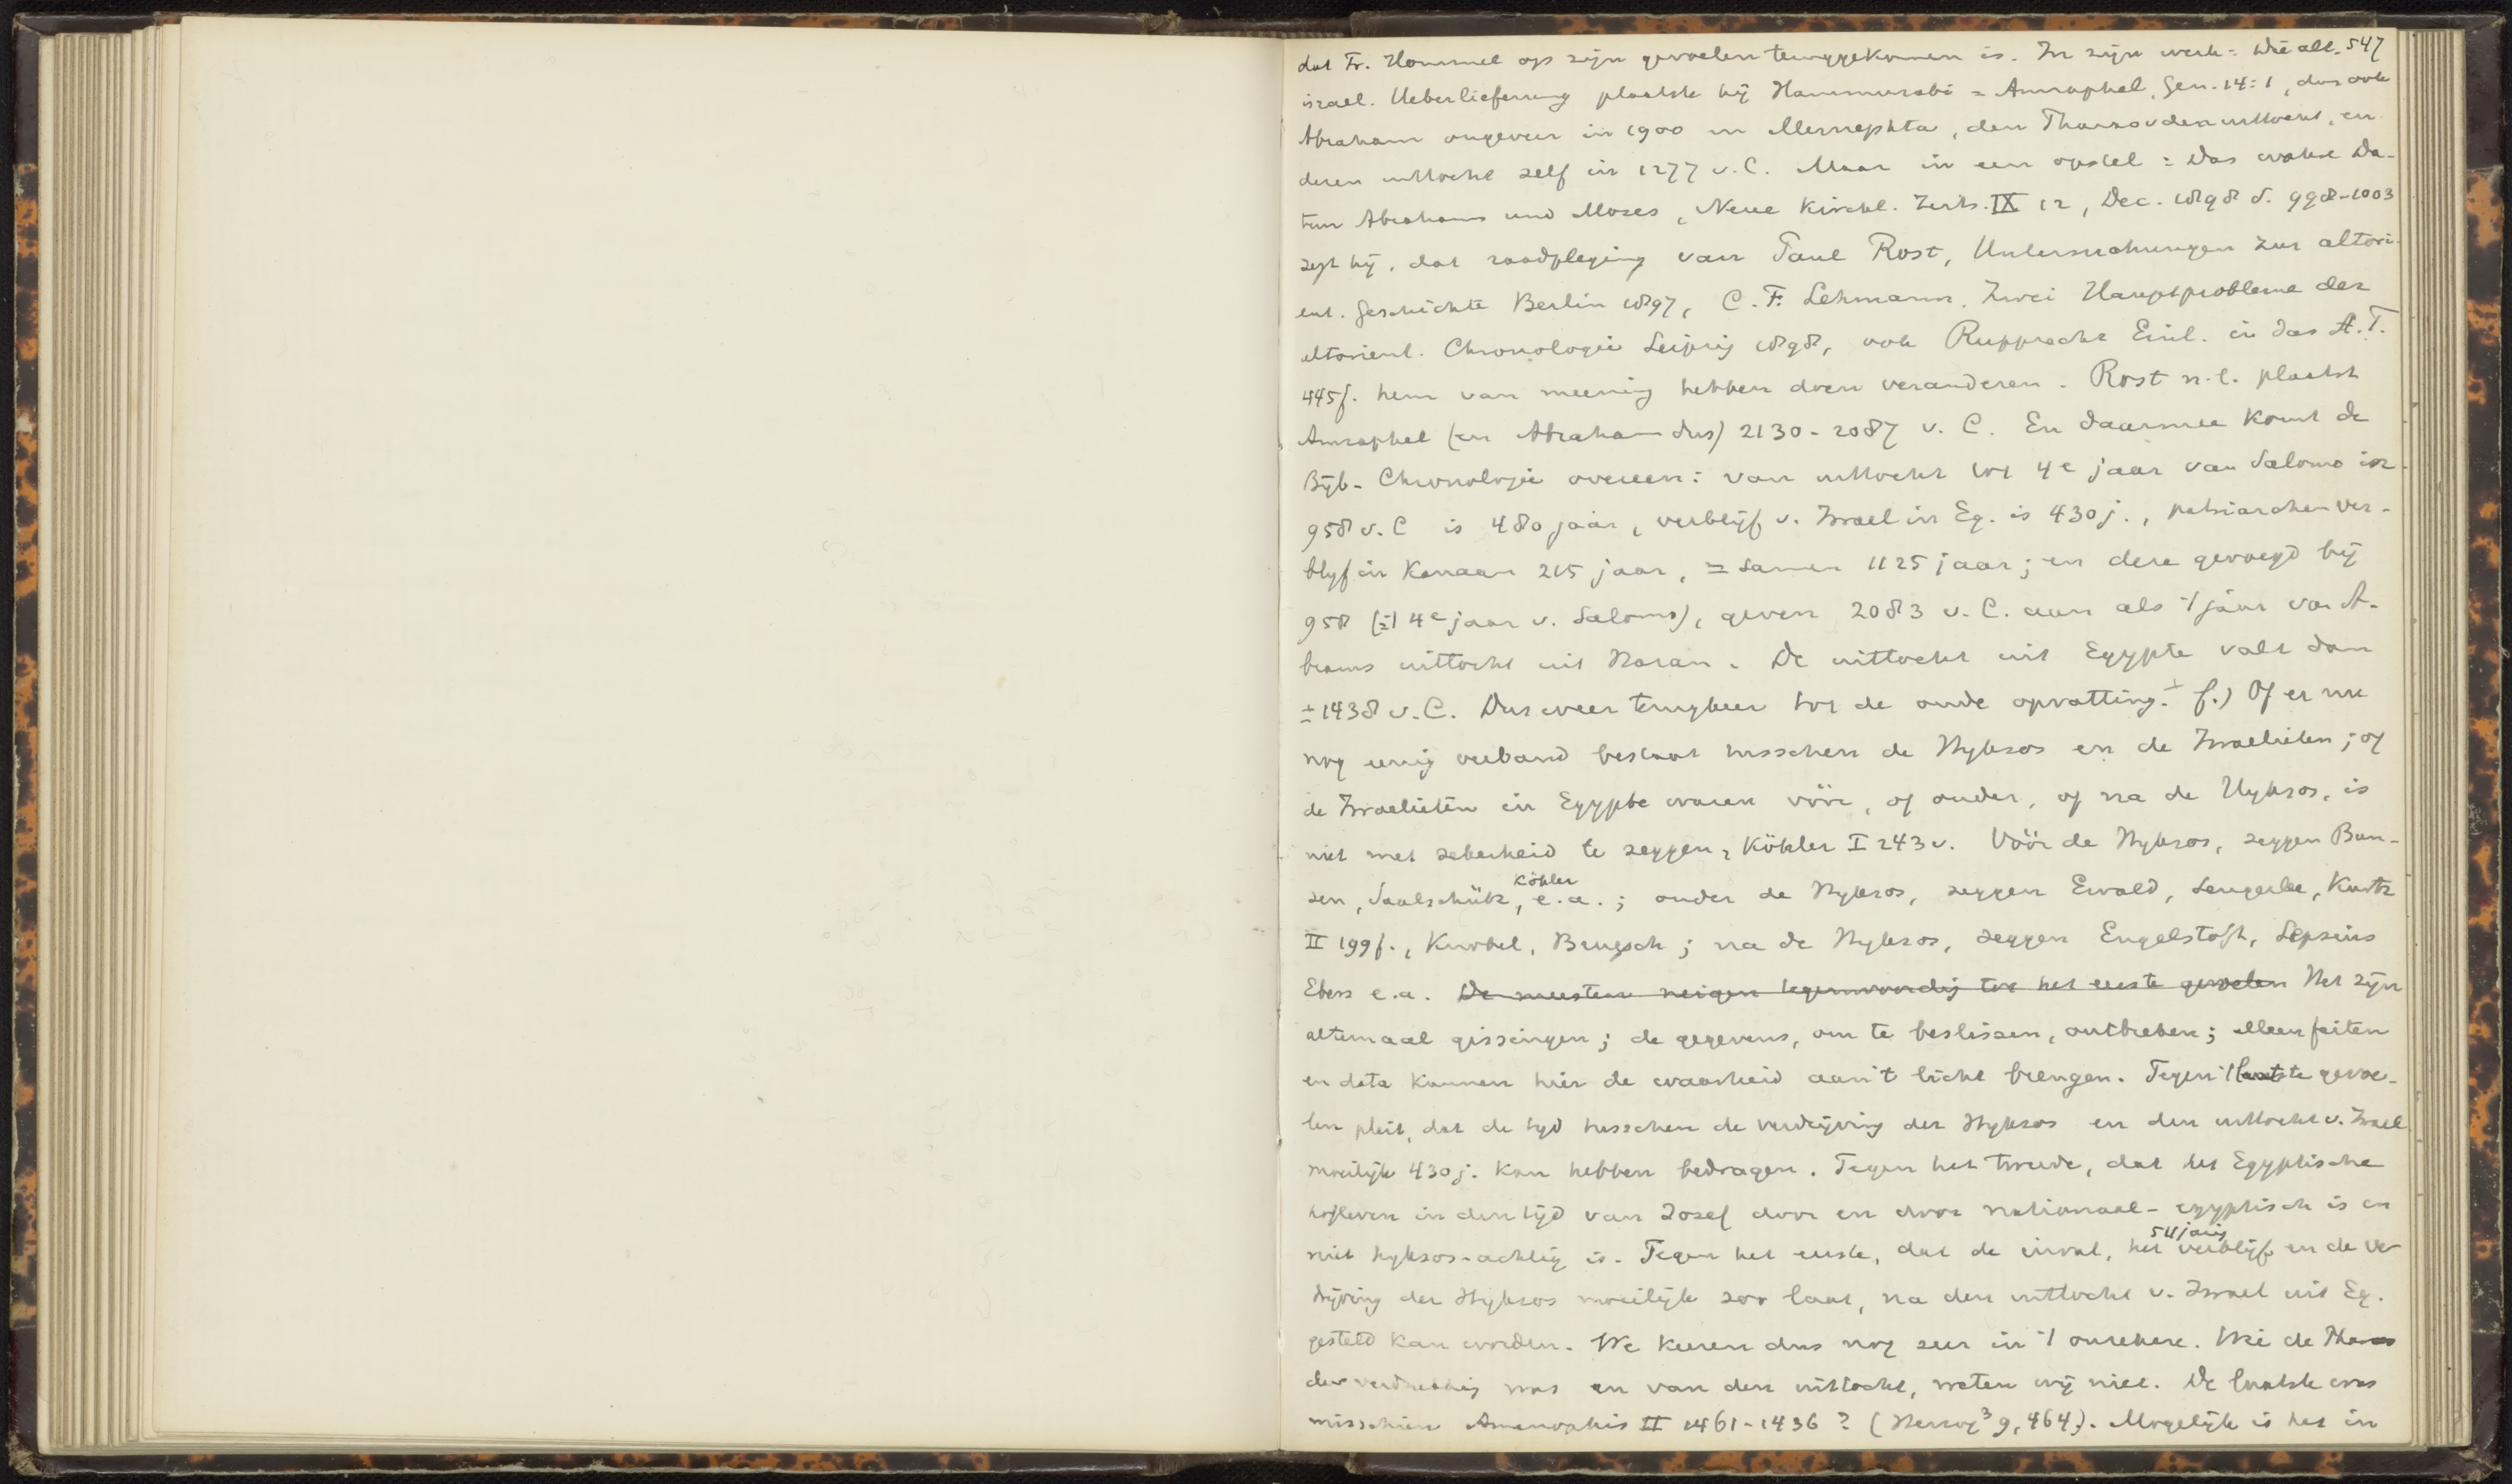 dat Fr. Hommel op zijn gevoelen teruggekomen is. In zijn werk: Die alt- 547
israel. Ueberlieferung plaatste hij Hammurabi = Amraphel, Gen. 14:1, dus ook
Abraham ongeveer in 1900 en Mernephta, den Pharao v den uittocht, en
deren uittocht zelf in 1277 v.C. Maar in een opstel: Das wahre Da-
tum Abrahams und Moses, Neue Kirchl. Zeits. IX 12, Dec. 1898 S. 998-1003
zegt hij, dat raadpleging van Paul Rost, Untersuchungen zur altori-
ent. Geschichte Berlin 1897, C.F. Lehmann. Zwei Hauptprobleme der
altorient. Chronologie Leipzig 1898, ook Rupprecht Einl. in das A.T.
445f. hem van meening hebben doen veranderen. Rost n.l. plaatst
Amraphel (en Abraham dus) 2130-2087 v. C. En daarmee komt de
Bijb. Chronologie overeen: van uittocht tot 4e jaar van Salomo in
958 v.C is 480 jaar, verblijf v. Israel in Eg. is 430 j., patriarchen ver-
blijf in Kanaan 215 jaar, = samen 1125 jaar; en deze gevoegd bij
958 (= 't 4e jaar v. Salomo), geven 2083 v.C. aan als 't jaar van A-
brams uittocht uit Haran. De uittocht uit Egypte valt dan
± 1438 v.C. Dus weer terugkeer tot de oude opvatting. f.) Of er nu
nog eenig verband bestaat tusschen de Hyksos en de Israelieten; of
de Israelieten in Egypte waren vóór, of onder, of na de Hyksos, is
niet met zekerheid te zeggen, Köhler I 243v. Vóór de Hyksos, zeggen Bun-
sen, Saalschütz, Köhler e.a.; onder de Hyksos, zeggen Ewald, Lengerke, Kurtz
II 199f., Knobel, Brugsch; na de Hyksos, zeggen Engelstoft, Lepsius
Ebers e.a. De meesten neigen tegenwoordig tot het eerste gevoelen Het zijn
altemaal gissingen; de gegevens, om te beslissen, ontbreken; alleen feiten
en data kunnen hier de waarheid aan 't licht brengen. Tegen 't laatste gevoe-
len pleit, dat de tijd tusschen de verdrijving der Hyksos en den uittocht v. Israel
moeilijk 430 j. kan hebben bedragen. Tegen het tweede, dat het Egyptische
hofleven in den tijd van Jozef door en door nationaal-egyptisch is en
niet hyksos-achtig is. Tegen het eerste, dat de inval, het 511 jarig verblijf en de ver-
drijving der Hyksos moeilijk zoo laat, na den uittocht v. Israel uit Eg.
gesteld kan worden. We keeren dus nog zeer in 't onzekere. Wie de Pharao
der verdrukking was en van den uittocht, weten wij niet. De laatste was
misschien Amenophis II 1461-1436? (Herzog³ 9, 464). Mogelijk is het in